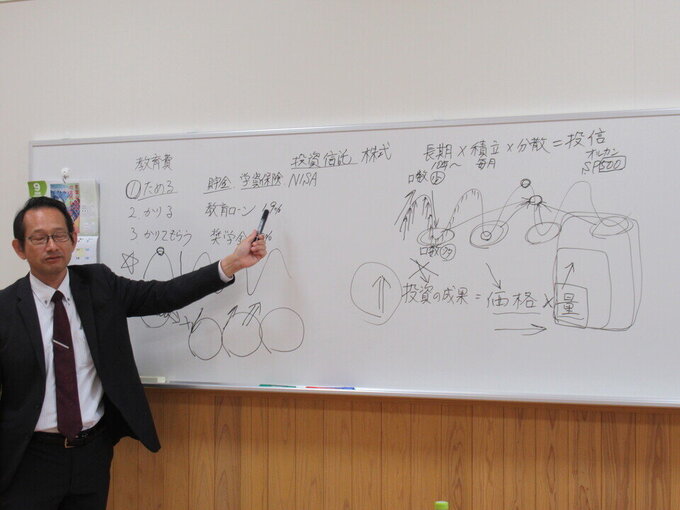 教育費
①ためる 貯金 学資保険 NISA 投資信託 株式
2. かりる 教育ローン
3 かりてもらう 奨学金
長期×積立×分散=投信
10年~ 毎月 オルカン
SP500
口数
口数
投資の成果=価格×量
9